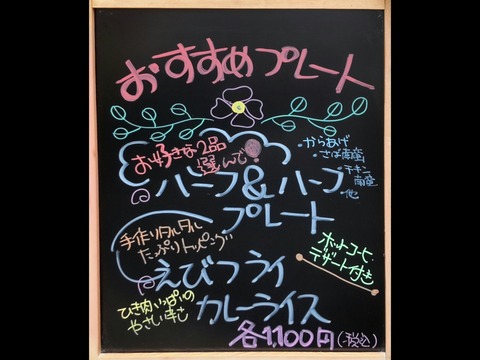 おすすめプレート
お好きな2品
選んで
ハーフ&ハーフ
プレート
・からあげ
・さば南蛮
・チキン
南蛮
他
手作りタルタル
たっぷりトッピング
えびフライ
カレーライス
ホットコーヒー・
デザート付き
ひき肉いっぱいの
やさい辛さ
各1,100円(税込)